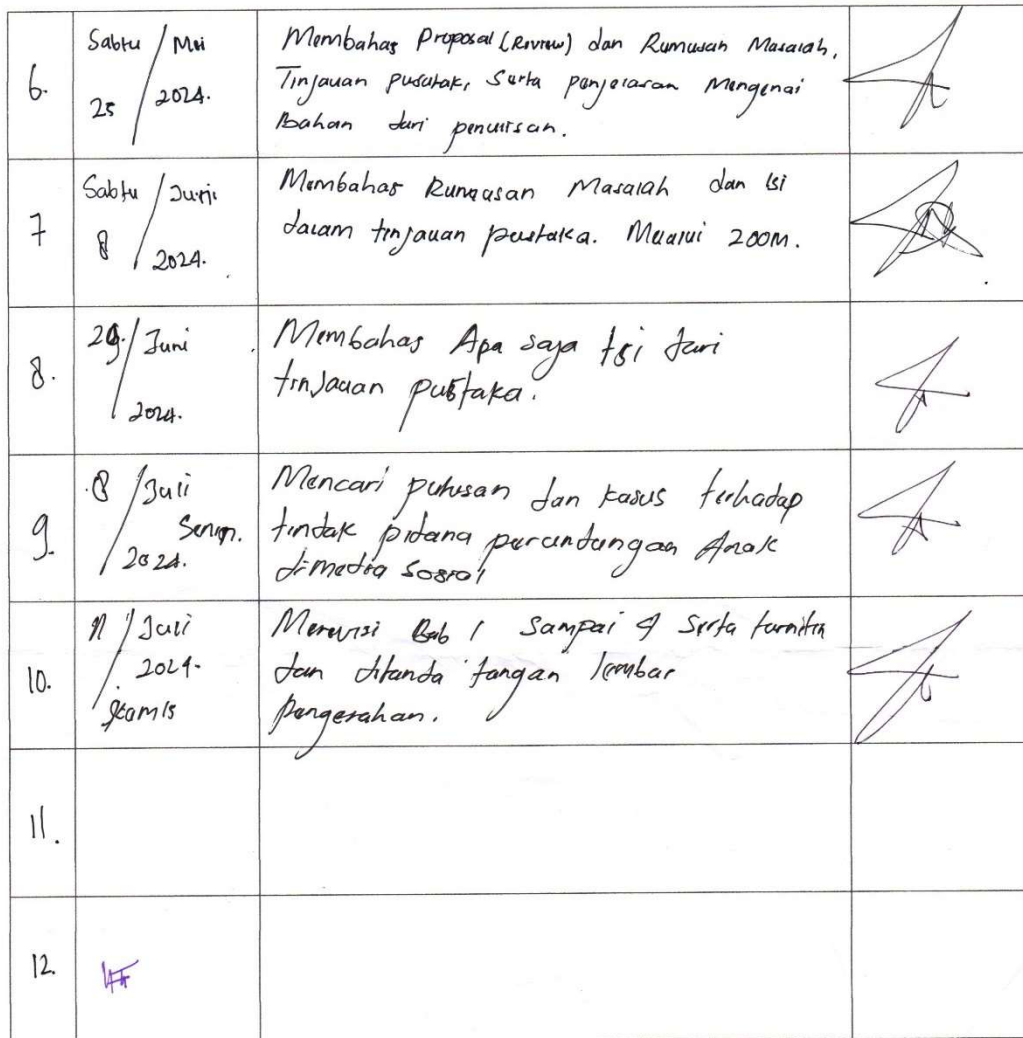 6.
Sabtu / Mei
25 / 2024.
Membahas Proposal (Review) dan Rumusan Masalah,
Tinjauan pusatak, Serta penjelasan Mengenai
Bahan dari penulisan.
7
Sabtu / Juni
8 / 2024.
Membahas Rumusan Masalah dan isi
dalam tinjauan pustaka. Melalui ZOOM.
8.
29 / Juni
2024.
Membahas Apa saja Isi dari
tinjauan pustaka.
9.
8 / Juli
Senin.
2024.
Mencari putusan dan kasus terhadap
tindak pidana perundungan Anak
dimedia sosial
10.
11 / Juli
2024.
Kamis
Merevisi Bab 1 Sampai 4 Serta turnitin
dan ditanda tangan lembar
Pengesahan.
11.
12.